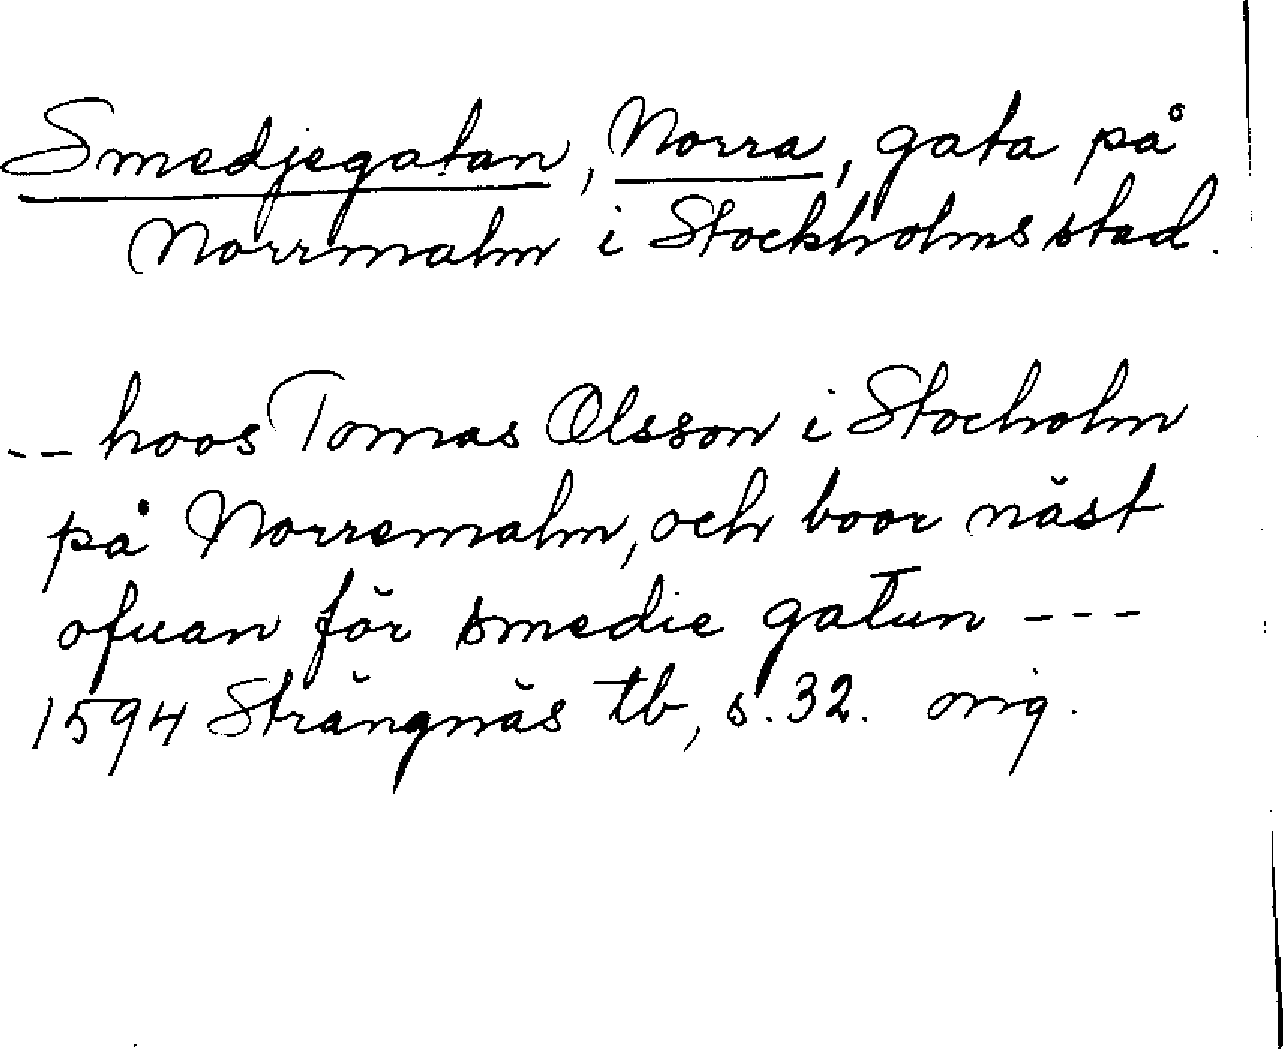 Smedjegatan, Norra, gata på
Norrmalm i Stockholms stad.
-- hoos Tomas Olsson i Stocholm
på Norremalm, och boor näst
ofuan för smedie gatun ---
1594 Strängnäs tb, s. 32. orig.